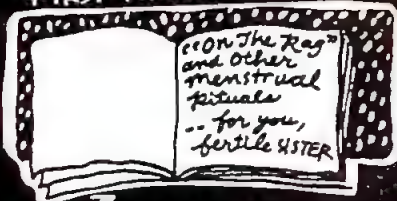 "On The Rag"
and Other
menstrual
Rituals
.. for you,
fertile SISTER